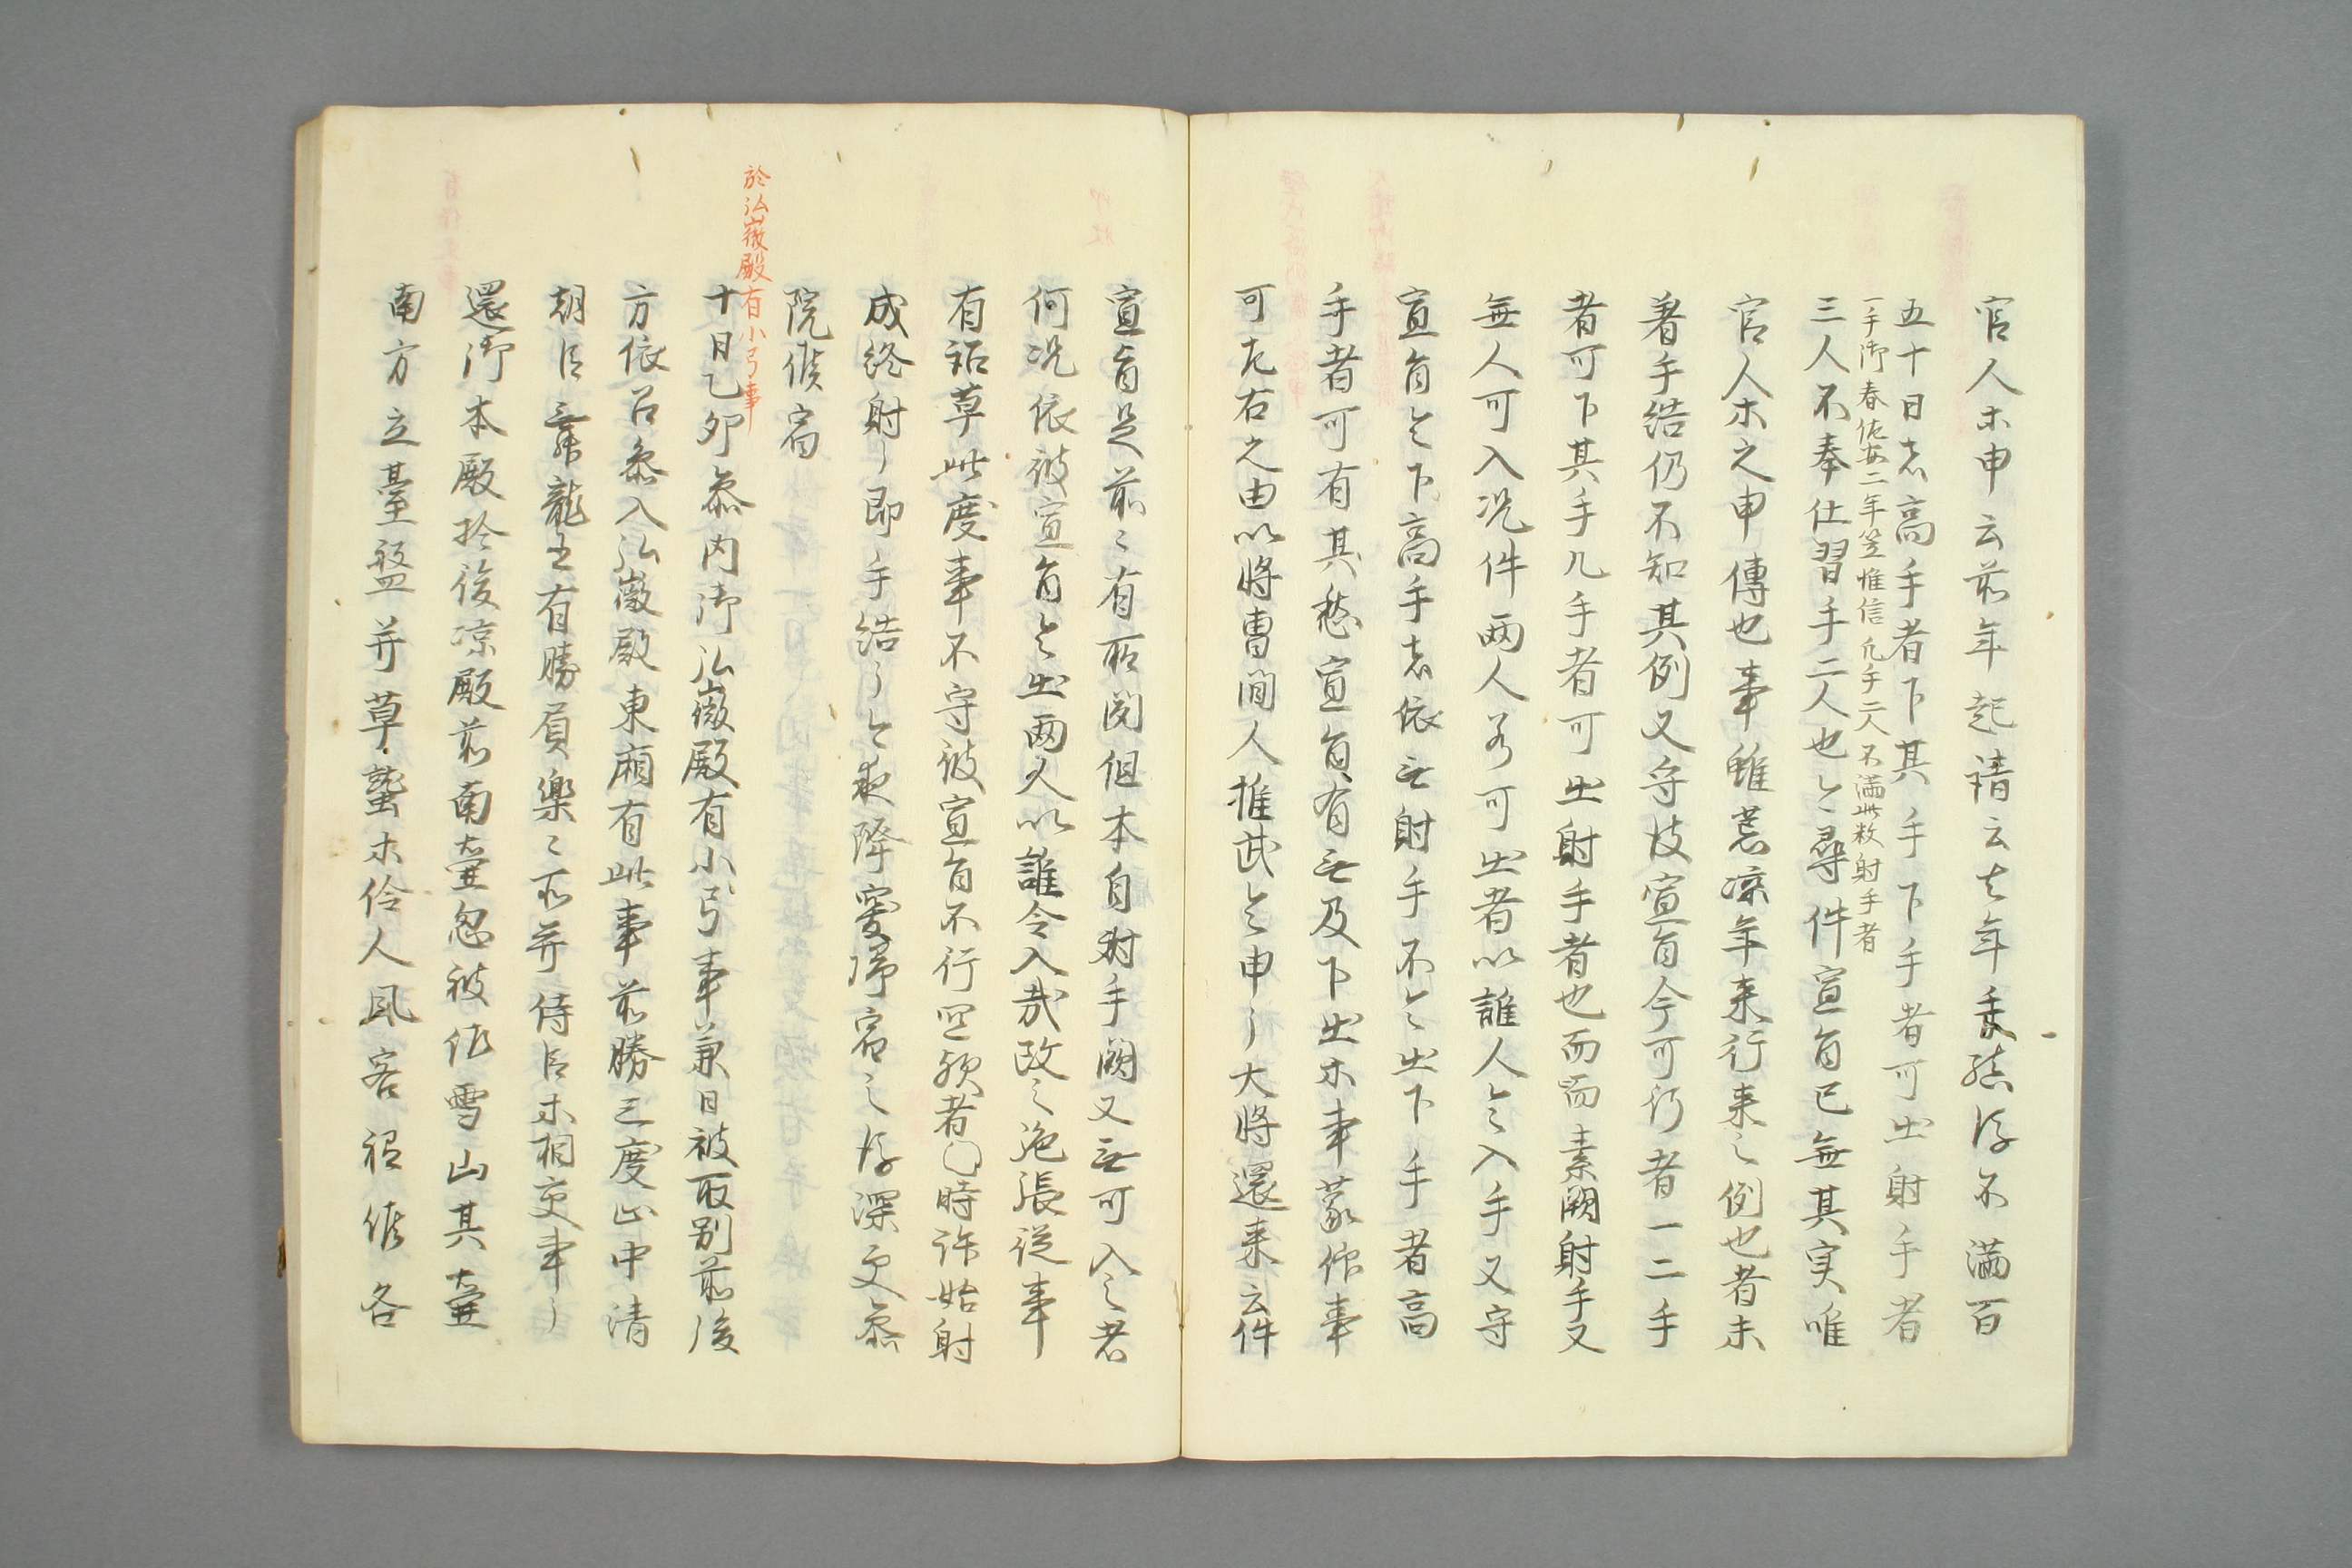 官人木申云前年起請云去年手結得不満百
五十日者高手者下其手下手者可出射手者
一手御春佐安二年笠惟信凡手二人不満此数射手者
三人不奉仕習手二人也令尋件宣旨已無其実唯
官人木之申傳也事雖荒凉年来行来之例也者未
着手結仍不知其例又守彼宣旨今可行者一二手
者可下其手凡手者可出射手者也而素闕射手又
無人可入况件両人若可出者以誰人令入手又守
宣旨令下高手者依无射手不令出下手者高
手者可有其愁宣旨有无及下出木事蒙作事
可左右之由以将曹間人推武令申了大将還来云件
宣旨是前〻有所聞但本自射手闕又无可入之者
何况依彼宣旨令出両人以誰令入哉改之弛張従事
有祐草此度事不守彼宣旨不行歟者○時許始射
成終射了即手結了令求降寮帰宿之後深更参
院候宿
於弘徽殿有小弓事
十日乙卯参内御弘徽殿有小弓事兼日被取別前後
方依召参入弘徽殿東廂有此事前勝三度山中清
朝臣舞龍王有勝負樂〻所并侍臣木相交事了
還御本殿於後凉殿前南壷忽被作雪山其壷
南方立臺盤并草墪木伶人風客祗候各